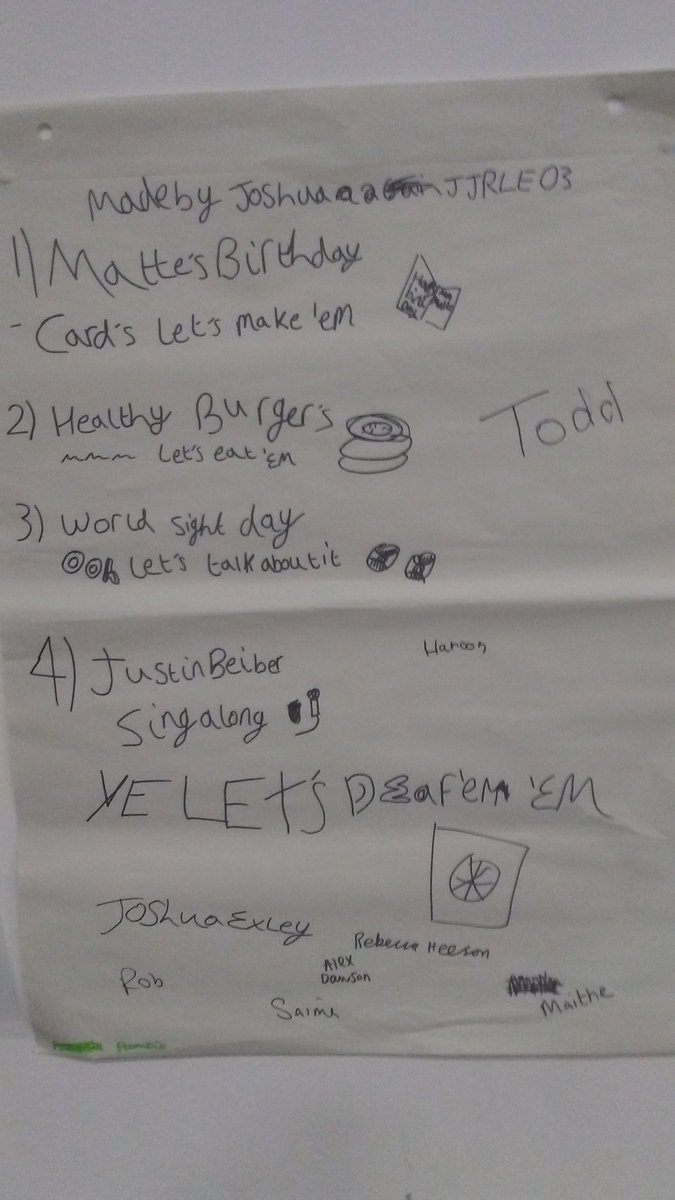 Made by Joshua JJRLE03
1) Matte's Birthday
- Card's Let's make 'em
2) Healthy Burger's
Let's eat 'em
Todd
3) World sight day
Let's talk about it
Haroon
4) Justin Beiber
Sing along
YE LET'S DEaF'EM 'EM
Joshua Exley
Rebecca Heeson
Rob
Alex
Dawson
Saima
Maithe